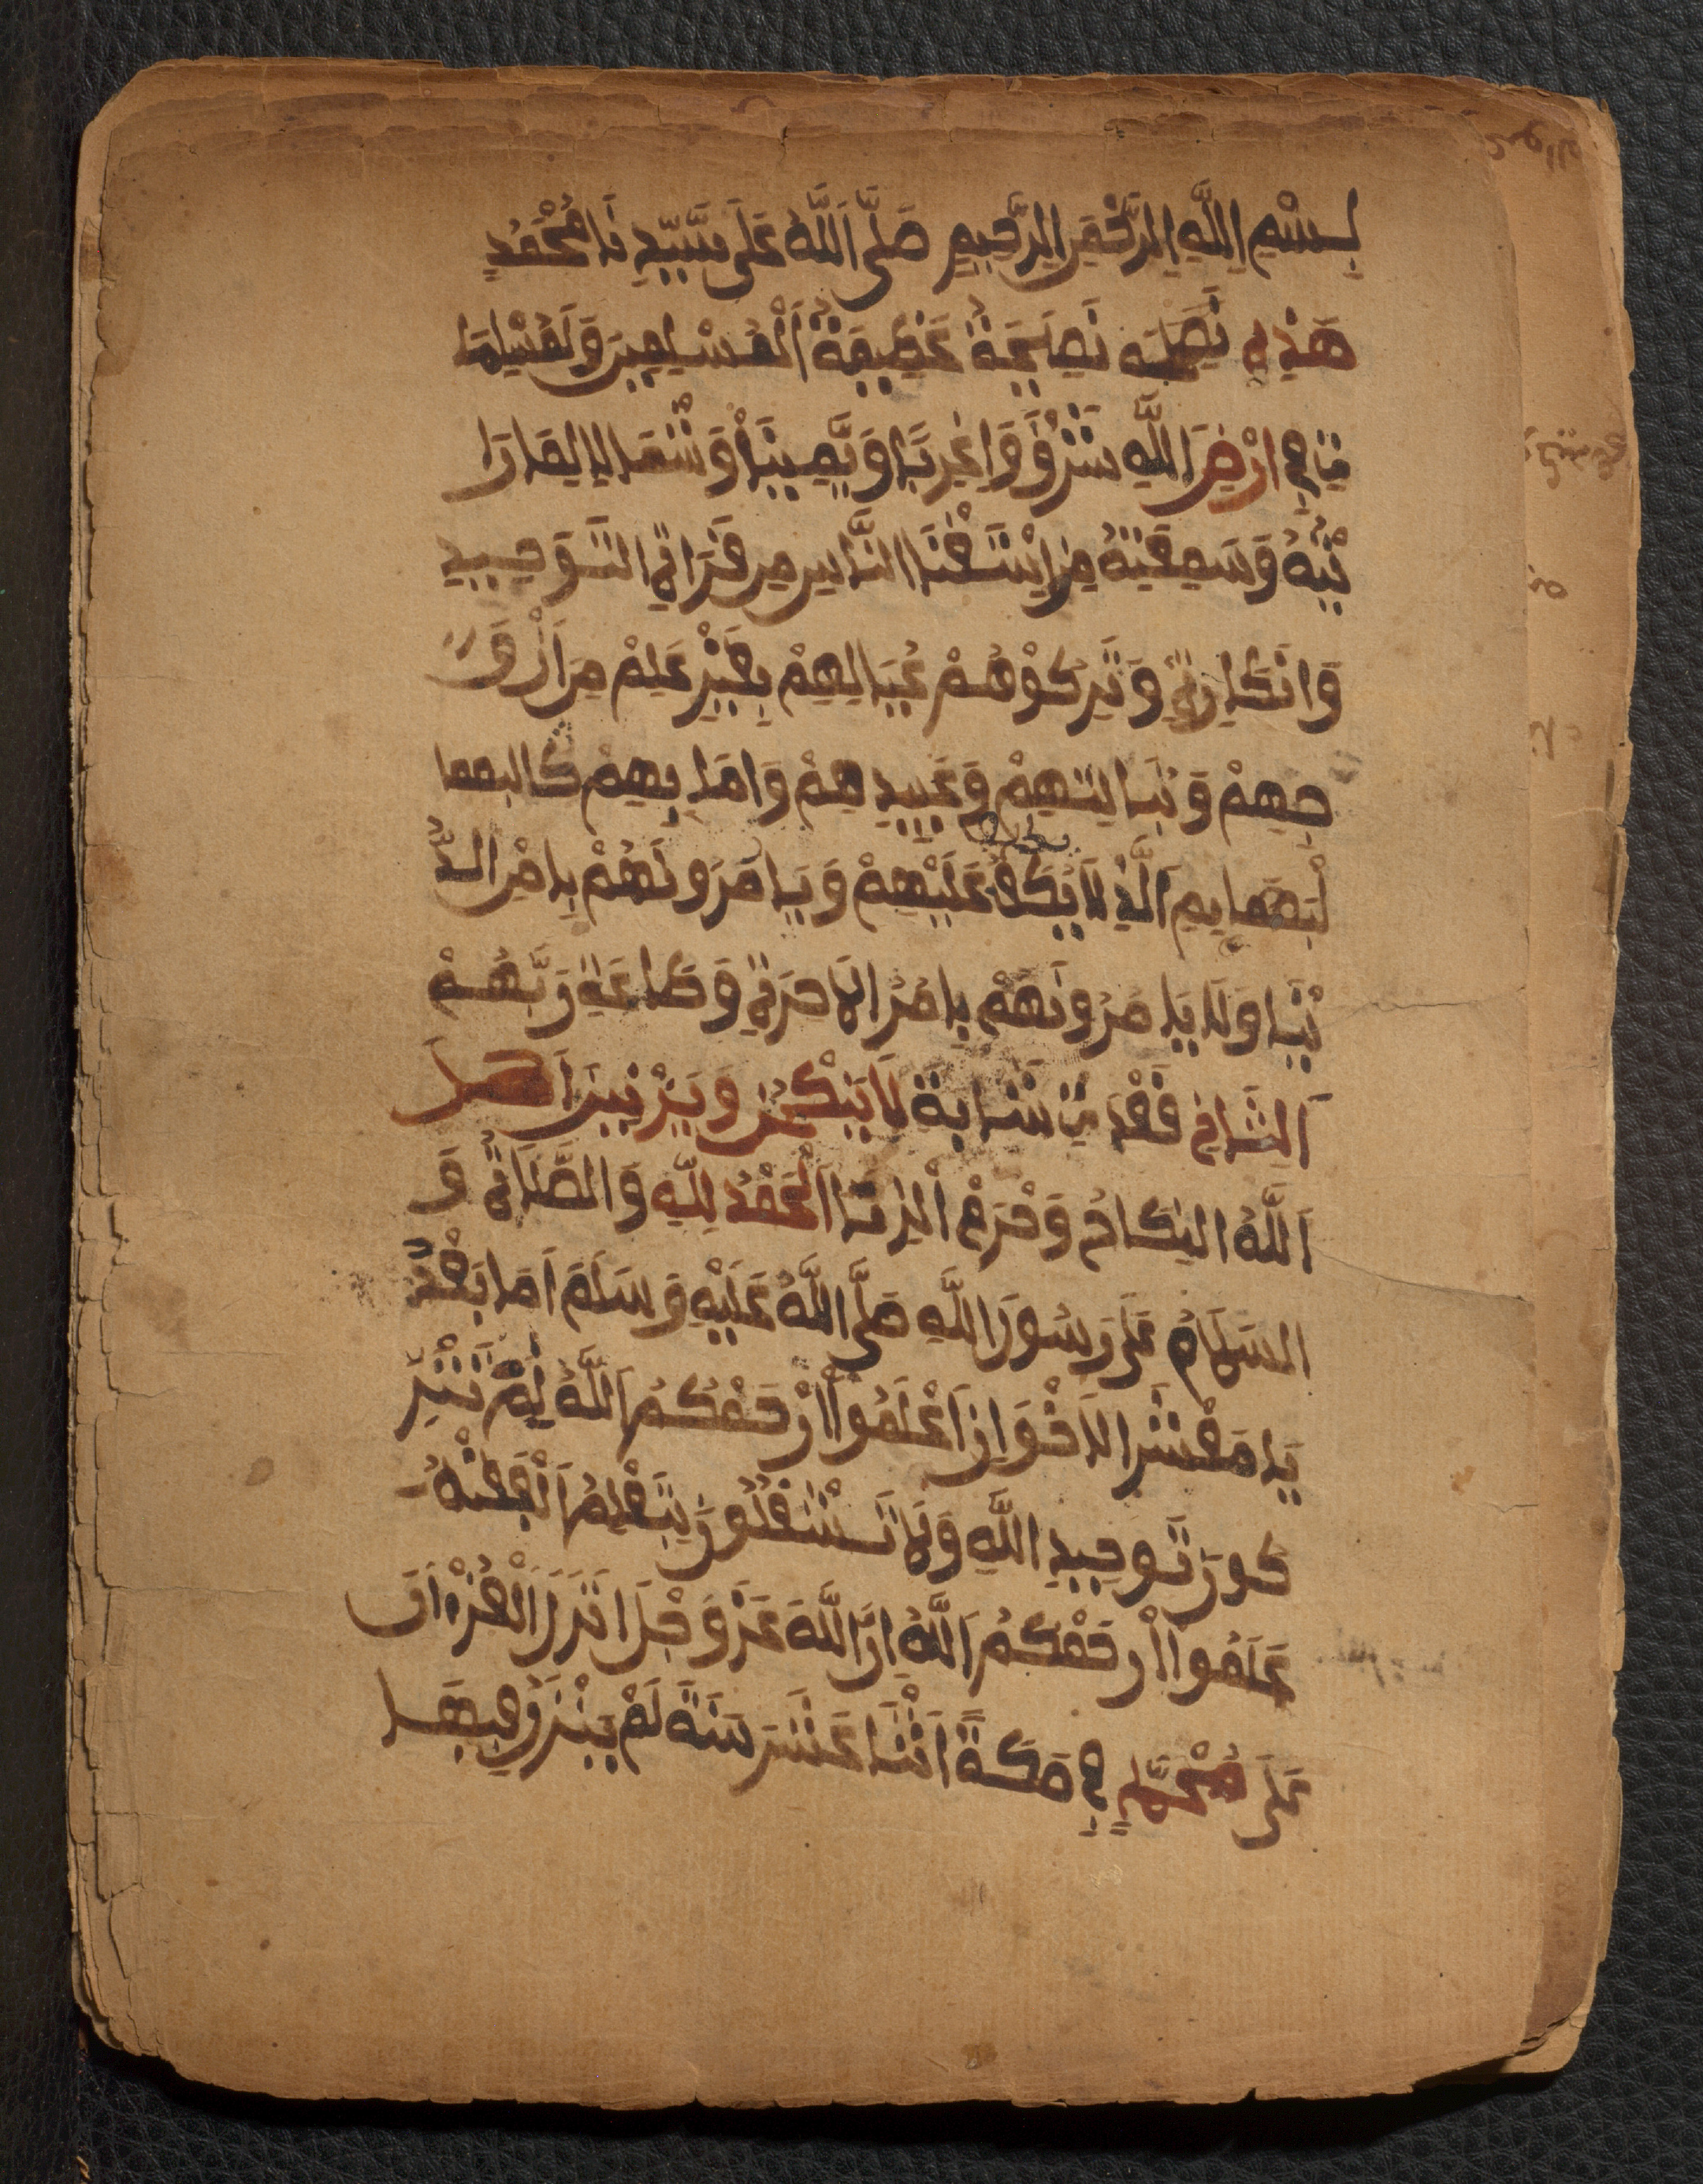 بِسْمِ اِللَّهِ اِلرَّحْمَنِ اِلرَّحِيمِ صَلَّى اَللَّهُ عَلَى سَيِّدِنَا مُحَمَّدٍ
هَذِهِ نَصِيحَة نَصِيحَةٌ عَظِيمَةٌ اَلْمُسْلِمِينَ وَلَمُسْلِمَا
تٍ فِي اَرْضِ اَللَّهِ شَرْقًا وَاغَرِبًا وَيَمِينًا وَشْمَالِا لِمَا رَا
يْتُهُ وَسَمِعْتُهُ مِنِ اِسْتَغْنَا النَّاسِ مِن قَرَاةِ التَوَحِيدِ
وَانْكَارِهِ وَتَرِكُوْهُمْ عُيَالِهِمْ بِغَيْرِ عَلِمْ مِنَ اَزْوَا
جِهِمْ وَبَنَاتِهِمْ وَعَبِيدِهِمْ وَامَا بِهِمْ كَالبهما
لْبَهَمايِمِ اَلَّذِ لَا يُكَلِّفُ عَلَيْهِمْ وَيَامَرُونَهُمْ بِامْرِ الدُّ
نْيَا وَلَا يَامُرُونَهَمْ بِامْرُ الَاخِرَةِ وَطَاعَةِ رَبِّهُمْ
اَلثَّانِ فَقْد تِ شَابَة لَا يَنْكَحْنِ وَيَزْنِينَ اَحَلَّ
اَللَّهُ النِكَاحُ وَحْرَمْ اَلزِنَا اَلْحَمْدُ لِلَّهِ وَالصَّلَاةُ وَ
السَلَامُ عَلَى رَسُورَ اللَّهِ صَلَّى اللَّهُ عَلَيْهِ وَسَلَمَ اَمَا بَعْدُ
يَا مَعْشَرَ الاَخْوَانِ اَعْلَمُوا اَرْحَمْكُمُ اَللَّهُ لِمْ تَتْرُ
كونَ تَوحِيدِ اللَّهِ وَلَا تَسْتَغْلُونَ بِتَعْلِمُ اَلْفِقْهُ
عَلَمُوا اَرْحَمْكُمُ اَللَّهُ اِنَّ اَللَّهَ عَزَ وَجْلَ اَنْزَلَ اَلْقُرْءَانَ
عَلَى مُحَمَّدٍ فِي مَكَةً اَثْنَا عَشَرَ سَنَةً لَمْ يَنْزِلْ فِيهَا